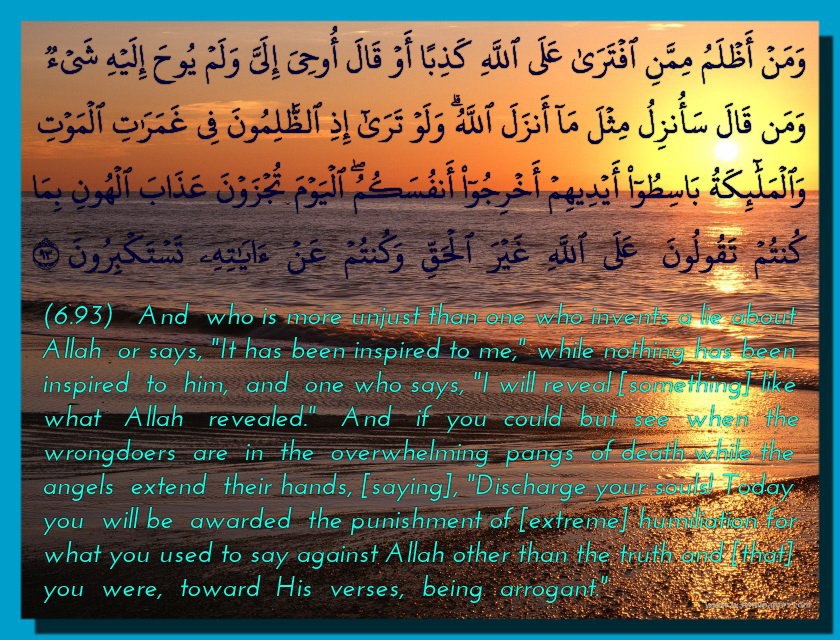 وَمَنْ أَظْلَمُ مِمَّنِ ٱفْتَرَىٰ عَلَى ٱللَّهِ كَذِبًا أَوْ قَالَ أُوحِىَ إِلَىَّ وَلَمْ يُوحَ إِلَيْهِ شَىْءٌ
وَمَن قَالَ سَأُنزِلُ مِثْلَ مَآ أَنزَلَ ٱللَّهُ ۗ وَلَوْ تَرَىٰٓ إِذِ ٱلظَّٰلِمُونَ فِى غَمَرَٰتِ ٱلْمَوْتِ
وَٱلْمَلَٰٓئِكَةُ بَاسِطُوٓا۟ أَيْدِيهِمْ أَخْرِجُوٓا۟ أَنفُسَكُمُ ۖ ٱلْيَوْمَ تُجْزَوْنَ عَذَابَ ٱلْهُونِ بِمَا
كُنتُمْ تَقُولُونَ عَلَى ٱللَّهِ غَيْرَ ٱلْحَقِّ وَكُنتُمْ عَنْ ءَايَٰتِهِۦ تَسْتَكْبِرُونَ ٩٣
(6.93) And who is more unjust than one who invents a lie about
Allah or says, "It has been inspired to me," while nothing has been
inspired to him, and one who says, "I will reveal [something] like
what Allah revealed." And if you could but see when the
wrongdoers are in the overwhelming pangs of death while the
angels extend their hands, [saying], "Discharge your souls! Today
you will be awarded the punishment of [extreme] humiliation for
what you used to say against Allah other than the truth and [that]
you were, toward His verses, being arrogant."